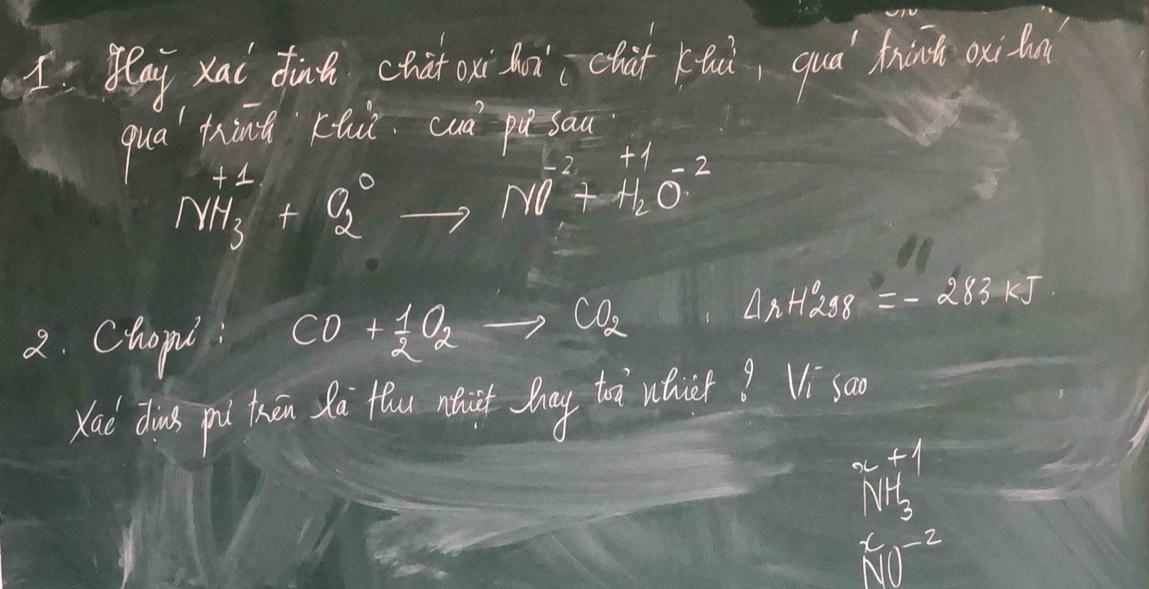 1. Hãy xác định chất oxi hoá, chất khử, quá trình oxi hoá
quá trình khử. của pứ sau:
N⁺¹H₃ + O₂⁰ → NO⁻² + H₂⁺¹O⁻²
2. Cho pứ: CO + 1/2 O₂ → CO₂ , ΔrH⁰298 = - 283 KJ.
Xác định pứ trên là thu nhiệt hay toả nhiệt? Vì sao
x +1
NH₃
x -2
NO